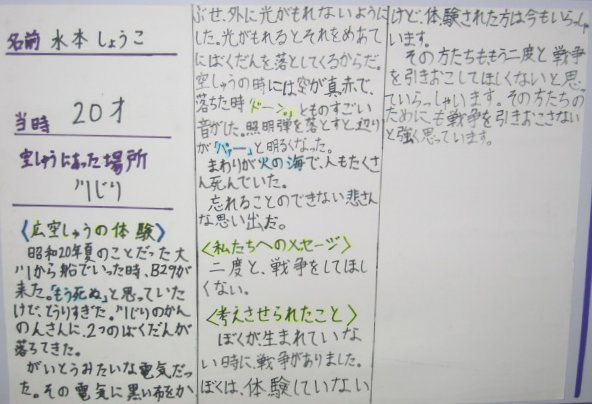 名前 水本しょうこ
当時 20才
空しゅうにあった場所
川じり
〈広空しゅうの体験〉
昭和20年夏のことだった大
川から船でいった時、B29が
来た。「もう死ぬ」と思っていた
けど、とうりすぎた。川じりのかん
のんさんに、2つのばくだんが
落ちてきた。
がいとうみたいな電気だっ
た。その電気に黒い布をか
ぶせ、外に光がもれないように
した。光がもれるとそれをめあて
にばくだんを落としてくるからだ。
空しゅうの時には空が真赤で、
落ちた時「ドーン。」とものすごい
音がした。照明弾を落とすと辺り
が「パァー」と明るくなった。
まわりが火の海で、人もたくさ
ん死んでいた。
忘れることのできない悲さん
な思い出だ。
〈私たちへのメセージ〉
二度と、戦争をしてほし
くない。
〈考えさせられたこと〉
ぼくが生まれていな
い時に、戦争がありました。
ぼくは、体験していない
けど、体験された方は今もいらっしゃ
います。
その方たちももう二度と戦争
を引きおこしてほしくないと思っ
ていらっしゃいます。その方たちの
ためにも戦争を引きおこさない
と強く思っています。